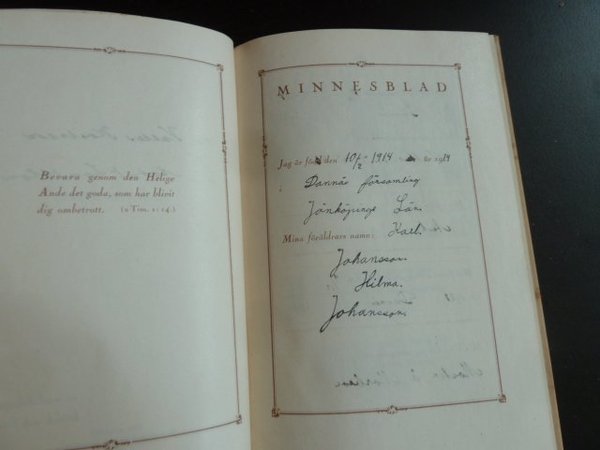 Bevara genom den Helige
Ande det goda, som har blivit
dig ombetrott. (2 Tim. 1: 14.)
MINNESBLAD
Jag är född den 10/2 - 1914 år 1914
Dannäs församling
Jönköpings Län.
Mina föräldrars namn: Karl.
Johansson.
Hilma.
Johansson.